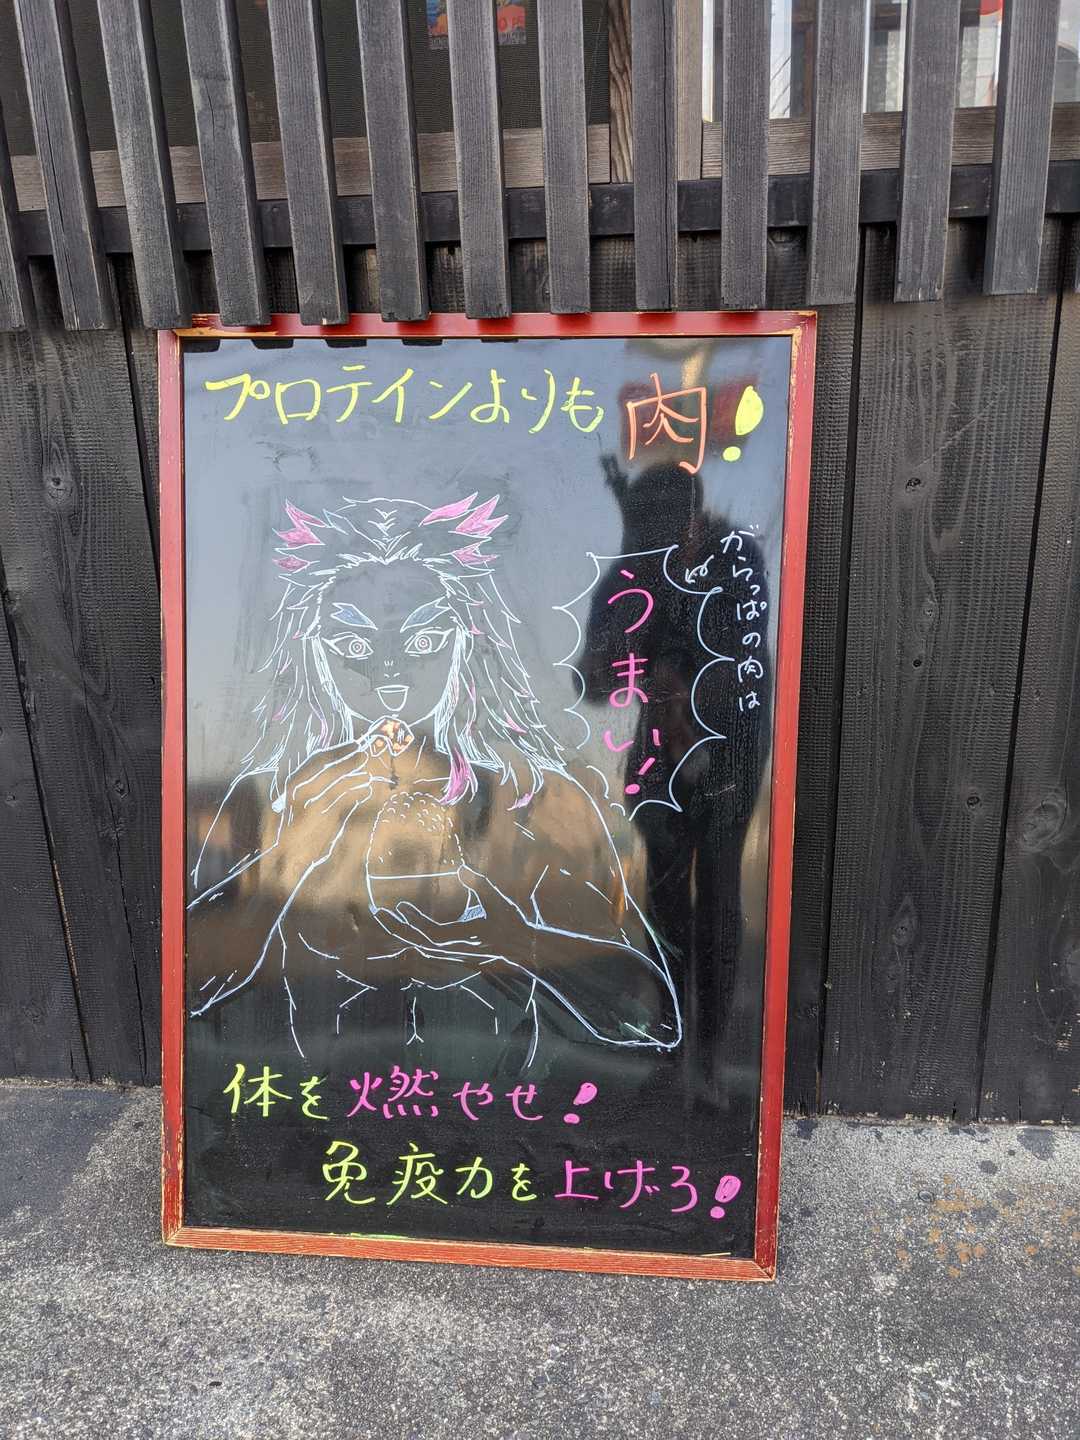 プロテインよりも肉!
がらっぱの肉は
うまい!
体を燃やせ!
免疫力を上げろ!